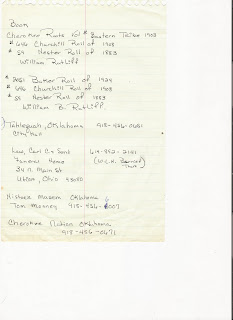 Book
Cherokee Roots Vol # Eastern Tribe 1908
* 646 Churchill Roll of 1908
* 54 Hester Roll of 1883
William Ratliff
* 2951 Baker Roll of 1924
* 646 Churchill Roll of 1908
* 54 Hester Roll of 1883
William B. Ratliff
Tahlequah, Oklahoma 918-456-0651
City Hall
Law, Carl C. & Sons 614-892-2141
Funeral Home
34 N. Main St
Utica, Ohio 43080
Historic Museum Oklahoma
Tom Mooney 918-456-6007
Cherokee Nation Oklahoma
918-456-0671